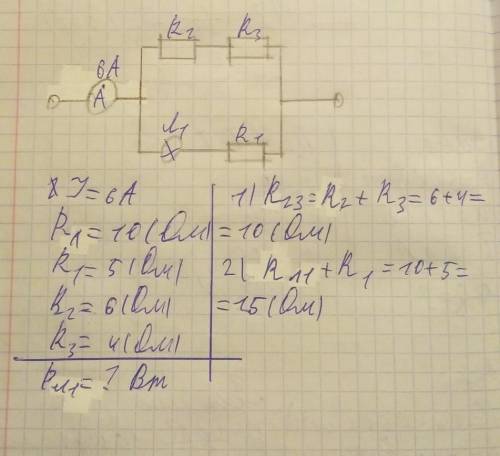 R₂ R₃
6A
A
Л₁ R₁
I = 6A
Rл = 10 (Ом)
R₁ = 5 (Ом)
R₂ = 6 (Ом)
R₃ = 4 (Ом)
Pл₁ = ? Вт
1) R₂₃ = R₂ + R₃ = 6 + 4 =
= 10 (Ом)
2) Rл₁ + R₁ = 10 + 5 =
= 15 (Ом)